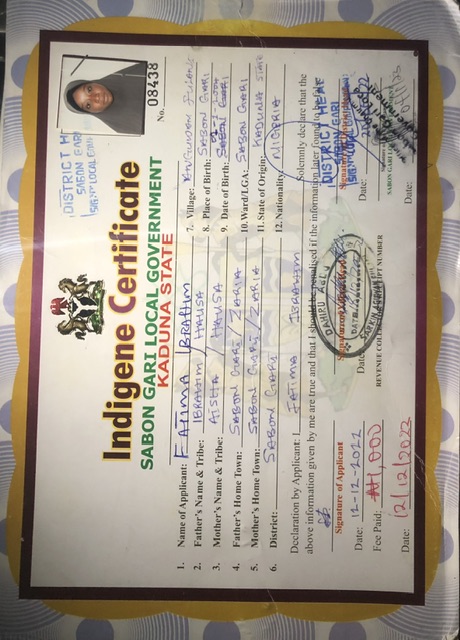 Indigene Certificate
SABON GARI LOCAL GOVERNMENT
KADUNA STATE
No. 08438
DISTRICT H
SABON GARI
1. Name of Applicant: FATIMA IBRAHIM
2. Father's Name & Tribe: IBRAHIM HAUSA
3. Mother's Name & Tribe: AISHA / HAUSA
4. Father's Home Town: SABON GARI / ZARIA
5. Mother's Home Town: SABON GARI / ZARIA
6. District: SABON GARI
7. Village:
8. Place of Birth: SABON GARI
9. Date of Birth:
10. Ward/LGA: SABON GARI
11. State of Origin: KADUNA STATE
12. Nationality: NIGERIA
Declaration by Applicant: I FATIMA IBRAHIM Solemnly declare that the
above information given by me are true and that I should be penalised if the information later found to be false
Signature of Applicant
Date: 12-12-2022
Fee Paid: ₦1,000
Date: 12/12/2022
DAHIRU
Date:
REVENUE COLLECTOR RECEIPT NUMBER
DISTRICT HEAD
SABON GARI
Date:
SABON GARI